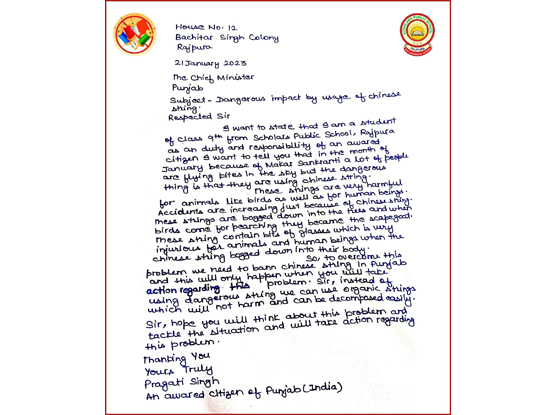 House No. 12
Bachitar Singh Colony
Rajpura
21 January 2023
The Chief Minister
Punjab
Subject - Dangerous impact by usage of chinese
string.
Respected Sir
I want to state that I am a student
of class 9th from Scholars Public School, Rajpura
as an duty and responsibility of an awared
citizen I want to tell you that in the month of
January because of Makar Sankranti a lot of people
are flying kites in the sky but the dangerous
thing is that they are using chinese string.
These strings are very harmful
for animals like birds as well as for human beings.
Accidents are increasing just because of chinese string.
These strings are bogged down into the tries and when
birds come for pearching they became the scapegoat.
These string contain bits of glasses which is very
injurious for animals and human beings when the
chinese string bogged down into their body.
So, to overcome this
problem we need to bann chinese string in Punjab
and this will only happen when you will take
action regarding this problem. Sir, instead of
using dangerous string we can use organic strings
which will not harm and can be decomposed easily.
Sir, hope you will think about this problem and
tackle the situation and will take action regarding
this problem.
Thanking You
Yours Truly
Pragati Singh
An awared citizen of Punjab (India)